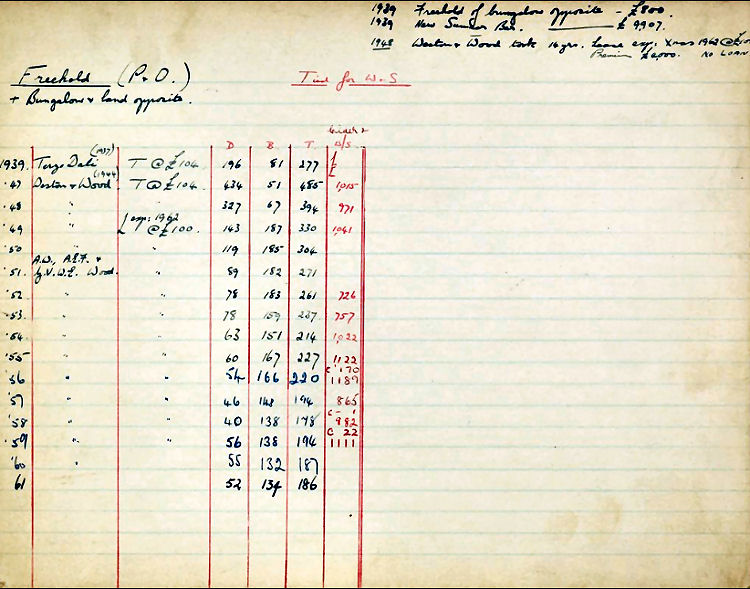 1939 Freehold of bungalow opposite - £800.
1939 New Summer Bar. £ 9907.
1948 Deston & Wood took 14 yrs. Lease exp: Xmas 1962 @ £100
Premium £6,000. NO LOAN
Freehold (P & O.)
+ Bungalow & land opposite.
Tied for W & S
D B T B/S
(1937)
1939. Dati T @ £104 196 81 277
(1944)
'47 Deston & Wood. T @ £104. 434 51 485 1015
'48 " " 327 67 394 971
'49 " exp: 1962 @ £100. 143 187 330 1041
'50 " 119 185 304
A.W., A.E.F. &
'51. Wood. " 89 182 271
'52 " " 78 183 261 726
'53 " " 78 159 237 757
'54 " " 63 151 214 1022
'55 " " 60 167 227 1122
C 170
'56 " " 54 166 220 1189
'57 " " 46 148 194 865
C - 1
'58 " " 40 138 178 982
C 22
'59 " " 56 138 194 1111
'60 " 55 132 187
61 52 134 186